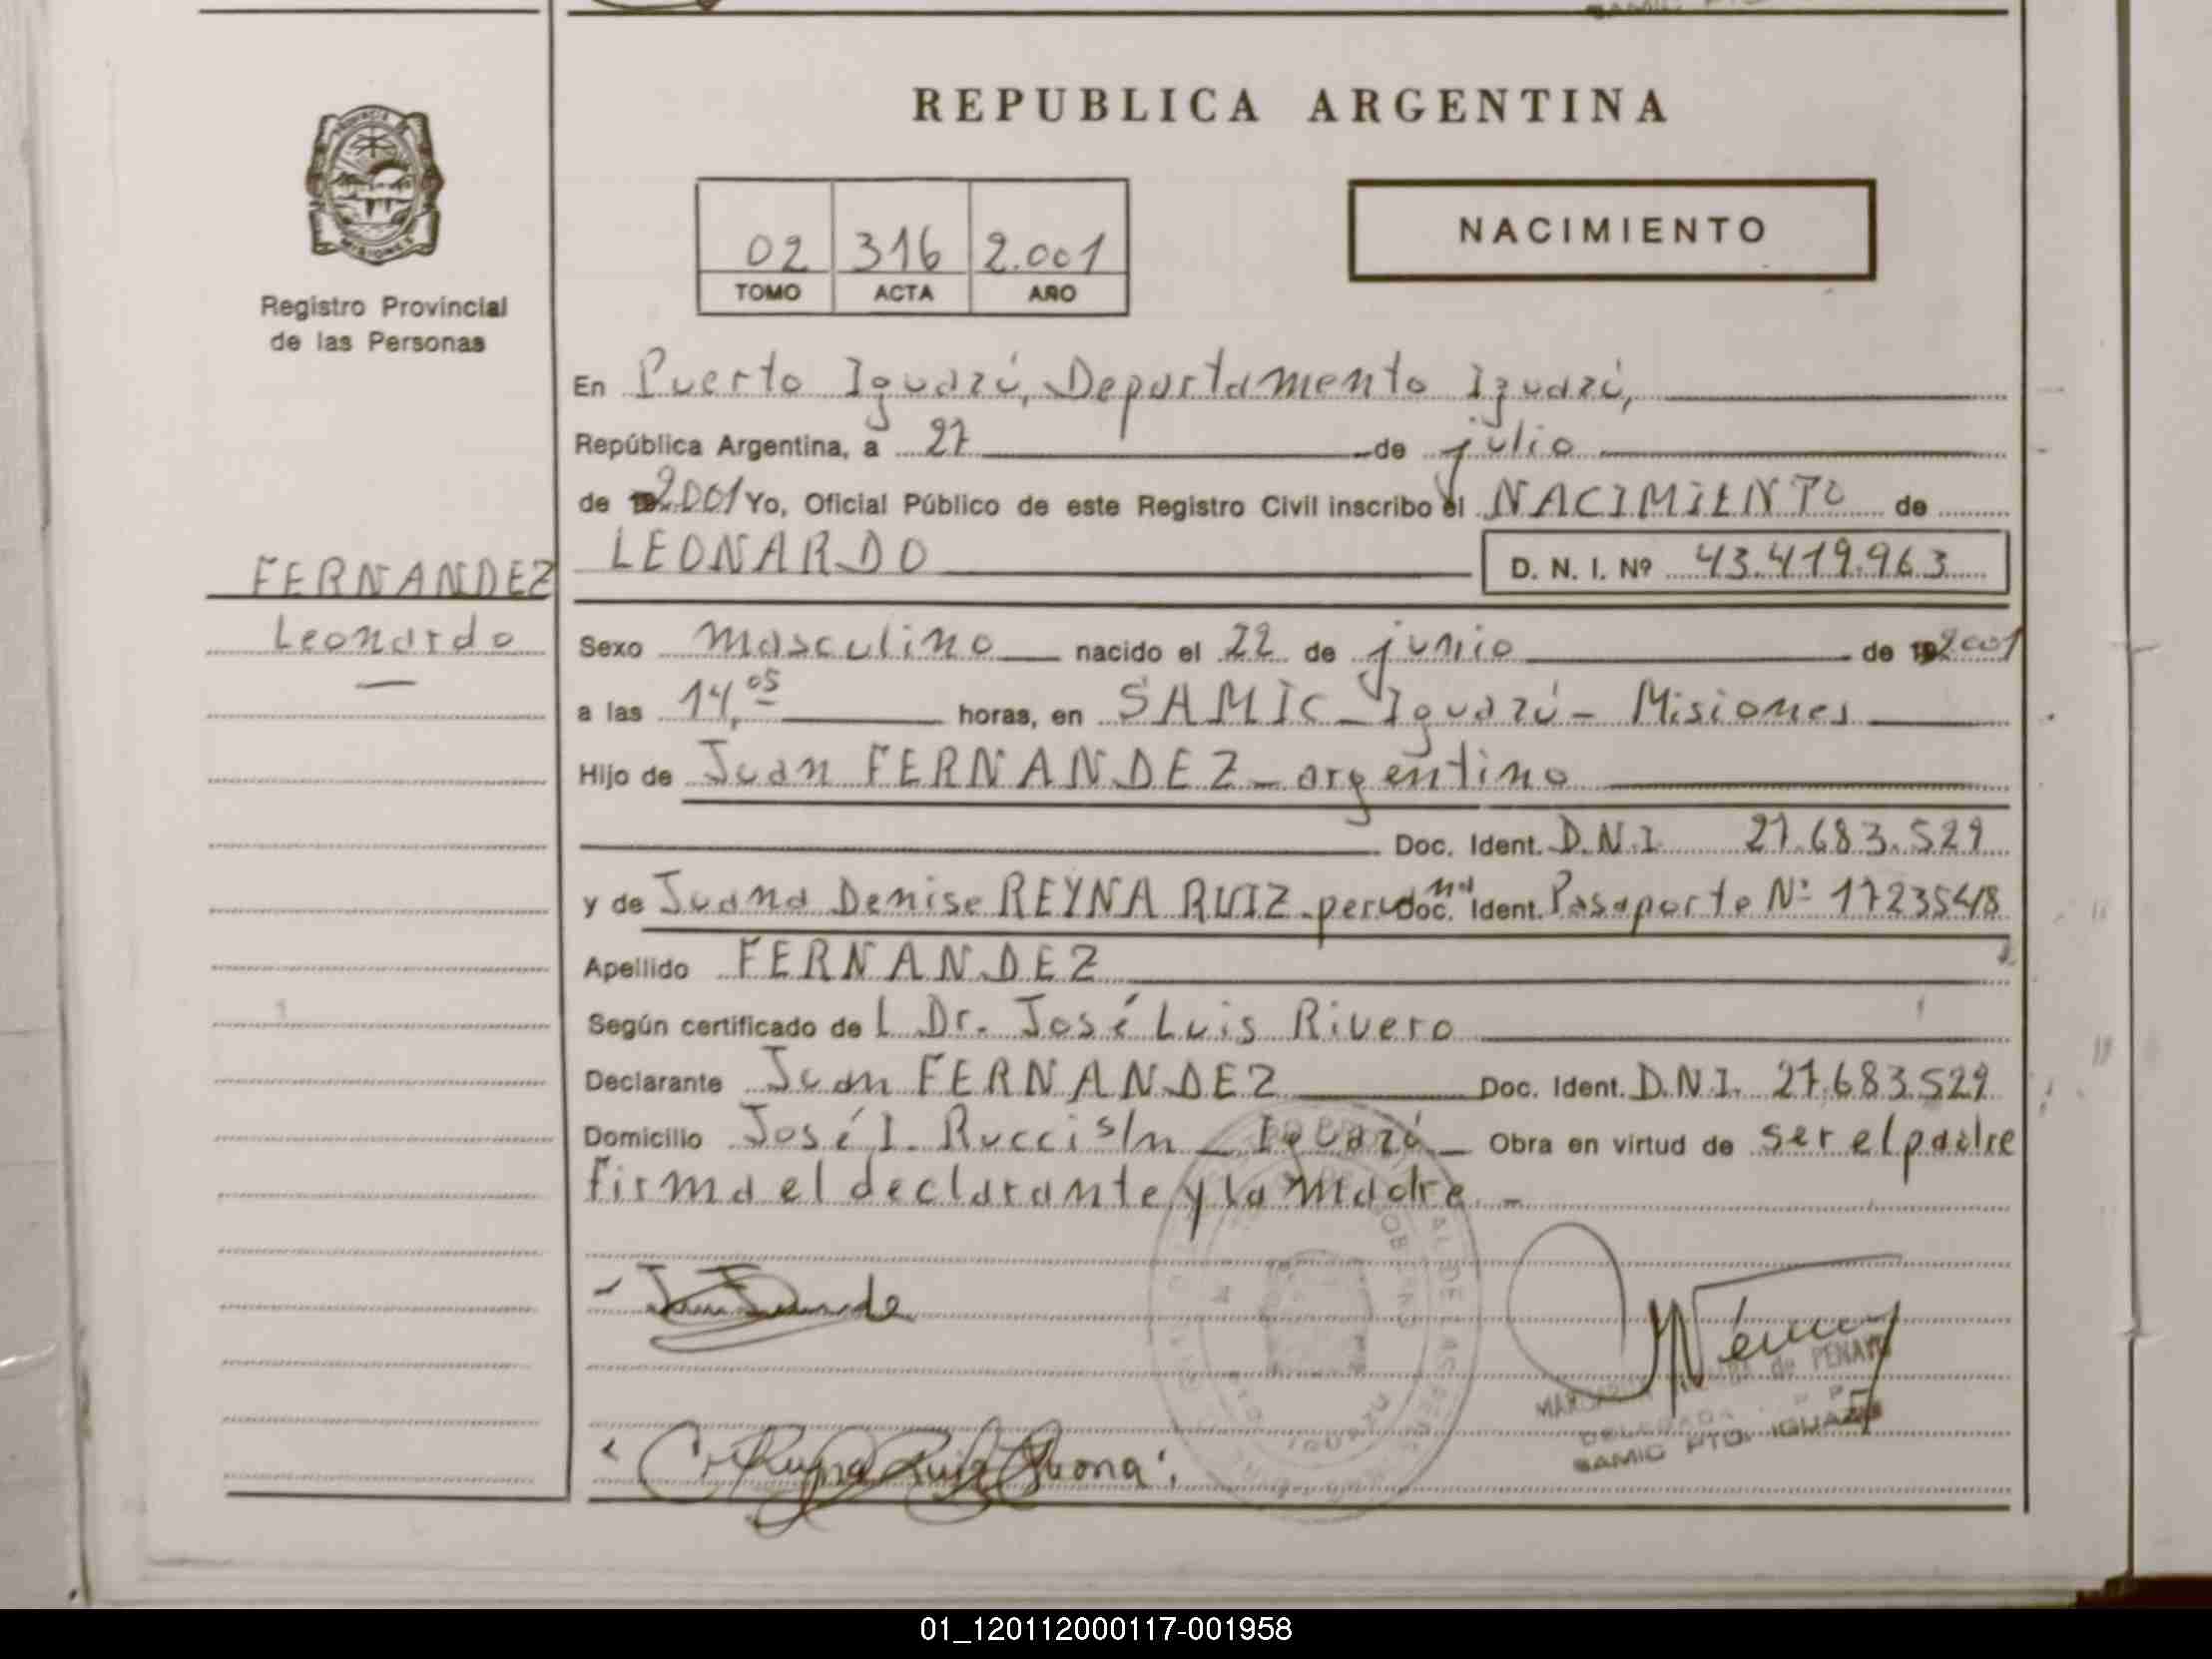 REPUBLICA ARGENTINA
02 316 2.001
TOMO ACTA AÑO
NACIMIENTO
Registro Provincial
de las Personas
En Puerto Iguazú, Departamento Iguazú,
República Argentina, a 27 de julio
de 2001 Yo, Oficial Público de este Registro Civil inscribo el NACIMIENTO de
LEONARDO D. N. I. Nº 43.419.963
FERNANDEZ
Leonardo
Sexo masculino nacido el 22 de junio de 2001
a las 14,05 horas, en SAMIC - Iguazú - Misiones
Hijo de Juan FERNANDEZ - argentino
Doc. Ident. D.N.I. 27.683.529
y de Juana Denise REYNA RUIZ - peruana Doc. Ident. Pasaporte Nº 1723548
Apellido FERNANDEZ
Según certificado de L Dr. José Luis Rivero
Declarante Juan FERNANDEZ Doc. Ident. D.N.I. 27.683.529
Domicilio José I. Rucci s/n - Iguazú - Obra en virtud de ser el padre
firma el declarante y la madre. -
Reyna Ruiz Juana
de PENAYO
DELEGADA
SAMIC PTO. IGUAZU
01_120112000117-001958